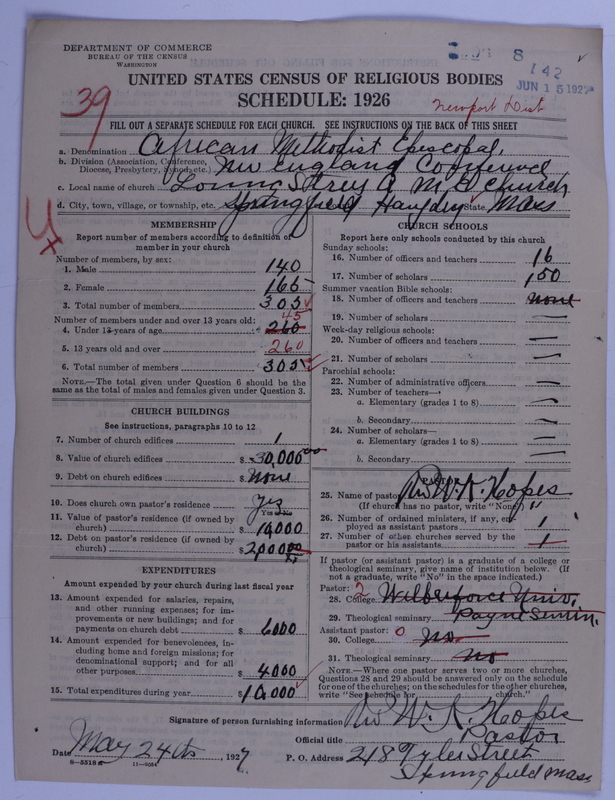 DEPARTMENT OF COMMERCE
BUREAU OF THE CENSUS
WASHINGTON
8
142
JUN 15 1927
UNITED STATES CENSUS OF RELIGIOUS BODIES
SCHEDULE: 1926
39
Newport Dist
FILL OUT A SEPARATE SCHEDULE FOR EACH CHURCH. SEE INSTRUCTIONS ON THE BACK OF THIS SHEET
a. Denomination African Methodist Episcopal,
b. Division (Association, Conference, Diocese, Presbytery, Synod, etc.) New England Conference
c. Local name of church Loring Street A. M. E. Church
d. City, town, village, or township, etc. Springfield Hampden State Mass
MEMBERSHIP
Report number of members according to definition of member in your church
Number of members, by sex:
1. Male 140
2. Female 165
3. Total number of members 305
Number of members under and over 13 years old:
4. Under 13 years of age 45 260
5. 13 years old and over 260
6. Total number of members 305
NOTE.—The total given under Question 6 should be the same as the total of males and females given under Question 3.
CHURCH BUILDINGS
See instructions, paragraphs 10 to 12
7. Number of church edifices 1
8. Value of church edifices $ 30,000.00
9. Debt on church edifices $ None
10. Does church own pastor's residence Yes
Yes or No
11. Value of pastor's residence (if owned by church) $ 10,000
12. Debt on pastor's residence (if owned by church) $ 2,000.00
EXPENDITURES
Amount expended by your church during last fiscal year
13. Amount expended for salaries, repairs, and other running expenses; for improvements or new buildings; and for payments on church debt $ 6000
14. Amount expended for benevolences, including home and foreign missions; for denominational support; and for all other purposes $ 4000
15. Total expenditures during year $ 10,000
CHURCH SCHOOLS
Report here only schools conducted by this church
Sunday schools:
16. Number of officers and teachers 16
17. Number of scholars 150
Summer vacation Bible schools:
18. Number of officers and teachers none
19. Number of scholars —
Week-day religious schools:
20. Number of officers and teachers —
21. Number of scholars —
Parochial schools:
22. Number of administrative officers —
23. Number of teachers—
a. Elementary (grades 1 to 8) —
b. Secondary —
24. Number of scholars—
a. Elementary (grades 1 to 8) —
b. Secondary —
PASTOR
25. Name of pastor Rev W. K. Hopes
(If church has no pastor, write "None")
26. Number of ordained ministers, if any, employed as assistant pastors 1
27. Number of other churches served by the pastor or his assistants 1
If pastor (or assistant pastor) is a graduate of a college or theological seminary, give name of institution below. (If not a graduate, write "No" in the space indicated.)
Pastor: 2
28. College Wilberforce Univ.
29. Theological seminary Payne Semin.
Assistant pastor: 0
30. College No
31. Theological seminary No
NOTE.—Where one pastor serves two or more churches, Questions 28 and 29 should be answered only on the schedule for one of the churches; on the schedules for the other churches, write "See schedule for church."
Signature of person furnishing information Rev W. K. Hopes
Official title Pastor
Date May 24th, 1927
P. O. Address 218 Tyler Street
Springfield Mass
8-5518
11-9084